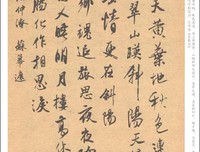 天黄葉地秋色連
翠山映斜陽天
情更在斜陽
鄉魂追旅思夜夜
人睡明月樓高休
腸化作相思淚
仲淹 蘇幕遮